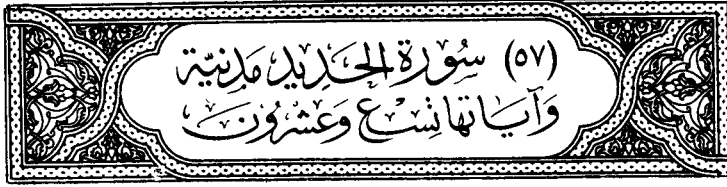 (٥٧) سُورَةُ الحَدِيدِ مَدَنِيَّة
وَآيَاتُهَا تِسْعٌ وَعِشْرُونَ